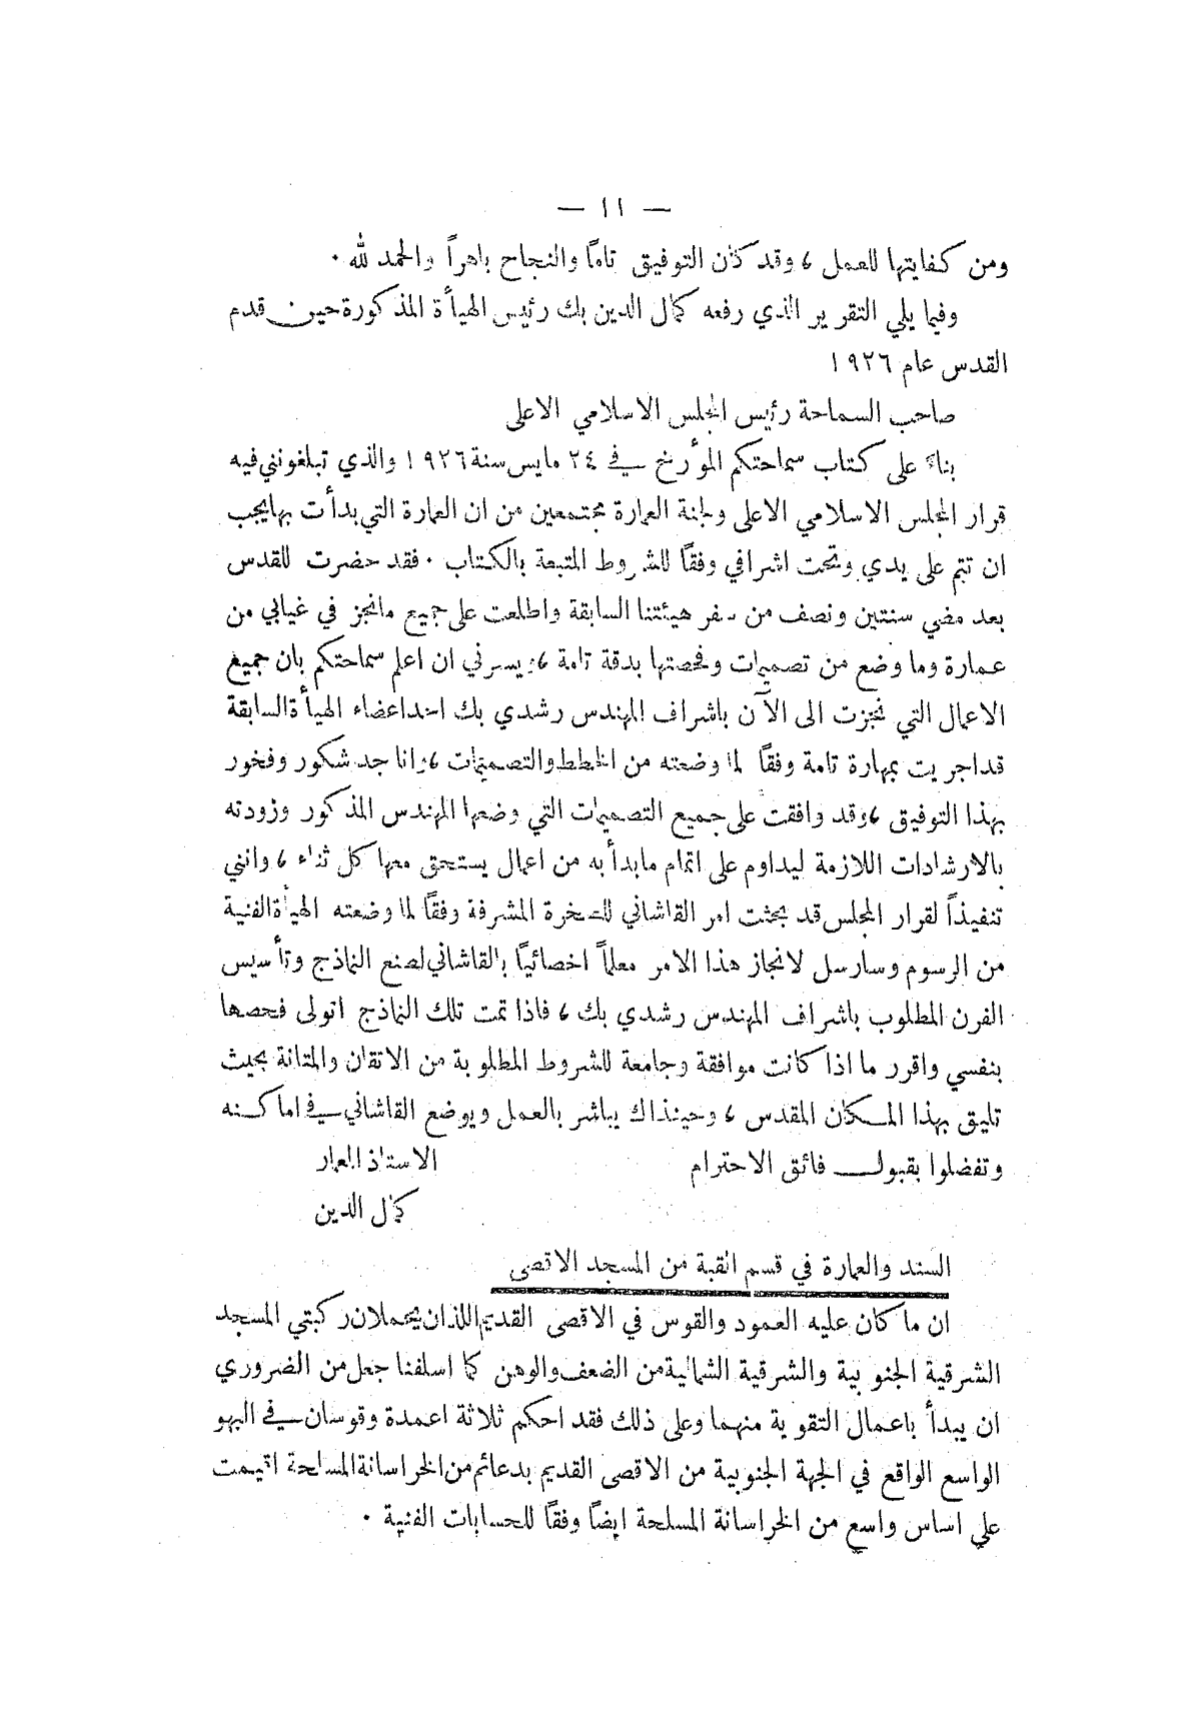 — ١١ —
ومن كفايتها للعمل ، وقد كان التوفيق تاماً والنجاح باهراً والحمد لله .
وفيما يلي التقرير الذي رفعه كمال الدين بك رئيس الهيأة المذكورة حين قدم
القدس عام ١٩٢٦
صاحب السماحة رئيس المجلس الاسلامي الاعلى
بناءً على كتاب سماحتكم المؤرخ في ٢٤ مايس سنة ١٩٢٦ والذي تبلغونني فيه
قرار المجلس الاسلامي الاعلى ولجنة العمارة مجتمعين من ان العمارة التي بدأت بها يجب
ان تتم على يدي وتحت اشرافي وفقاً للشروط المتبعة بالكتاب . فقد حضرت للقدس
بعد مضي سنتين ونصف من سفر هيئتنا السابقة واطلعت على جميع مانجز في غيابي من
عمارة وما وضع من تصميمات وفحصتها بدقة تامة ، ويسرني ان اعلم سماحتكم بان جميع
الاعمال التي نجزت الى الآن باشراف المهندس رشدي بك احد اعضاء الهيأة السابقة
قد اجريت بمهارة تامة وفقاً لما وضعته من الخطط والتصميمات ، وانا جد شكور وفخور
بهذا التوفيق ، وقد وافقت على جميع التصميمات التي وضعها المهندس المذكور وزودته
بالارشادات اللازمة ليداوم على اتمام مابدأ به من اعمال يستحق معها كل ثناء ، وانني
تنفيذاً لقرار المجلس قد بحثت امر القاشاني للصخرة المشرفة وفقاً لما وضعته الهيأة الفنية
من الرسوم وسارسل لانجاز هذا الامر معلماً اخصائياً بالقاشاني لصنع النماذج وتأسيس
الفرن المطلوب باشراف المهندس رشدي بك ، فاذا تمت تلك النماذج اتولى فحصها
بنفسي واقرر ما اذا كانت موافقة وجامعة للشروط المطلوبة من الاتقان والمتانة بحيث
تليق بهذا المكان المقدس ، وحينذاك يباشر بالعمل ويوضع القاشاني في اماكنه
وتفضلوا بقبول فائق الاحترام الاستاذ المعمار
كمال الدين
السند والعمارة في قسم القبة من المسجد الاقصى
ان ما كان عليه العمود والقوس في الاقصى القديم اللذان يحملان ركبتي المسجد
الشرقية الجنوبية والشرقية الشمالية من الضعف والوهن كما اسلفنا جعل من الضروري
ان يبدأ باعمال التقوية منهما وعلى ذلك فقد احكم ثلاثة اعمدة وقوسان في البهو
الواسع الواقع في الجهة الجنوبية من الاقصى القديم بدعائم من الخراسانة المسلحة اقيمت
على اساس واسع من الخراسانة المسلحة ايضاً وفقاً للحسابات الفنية .